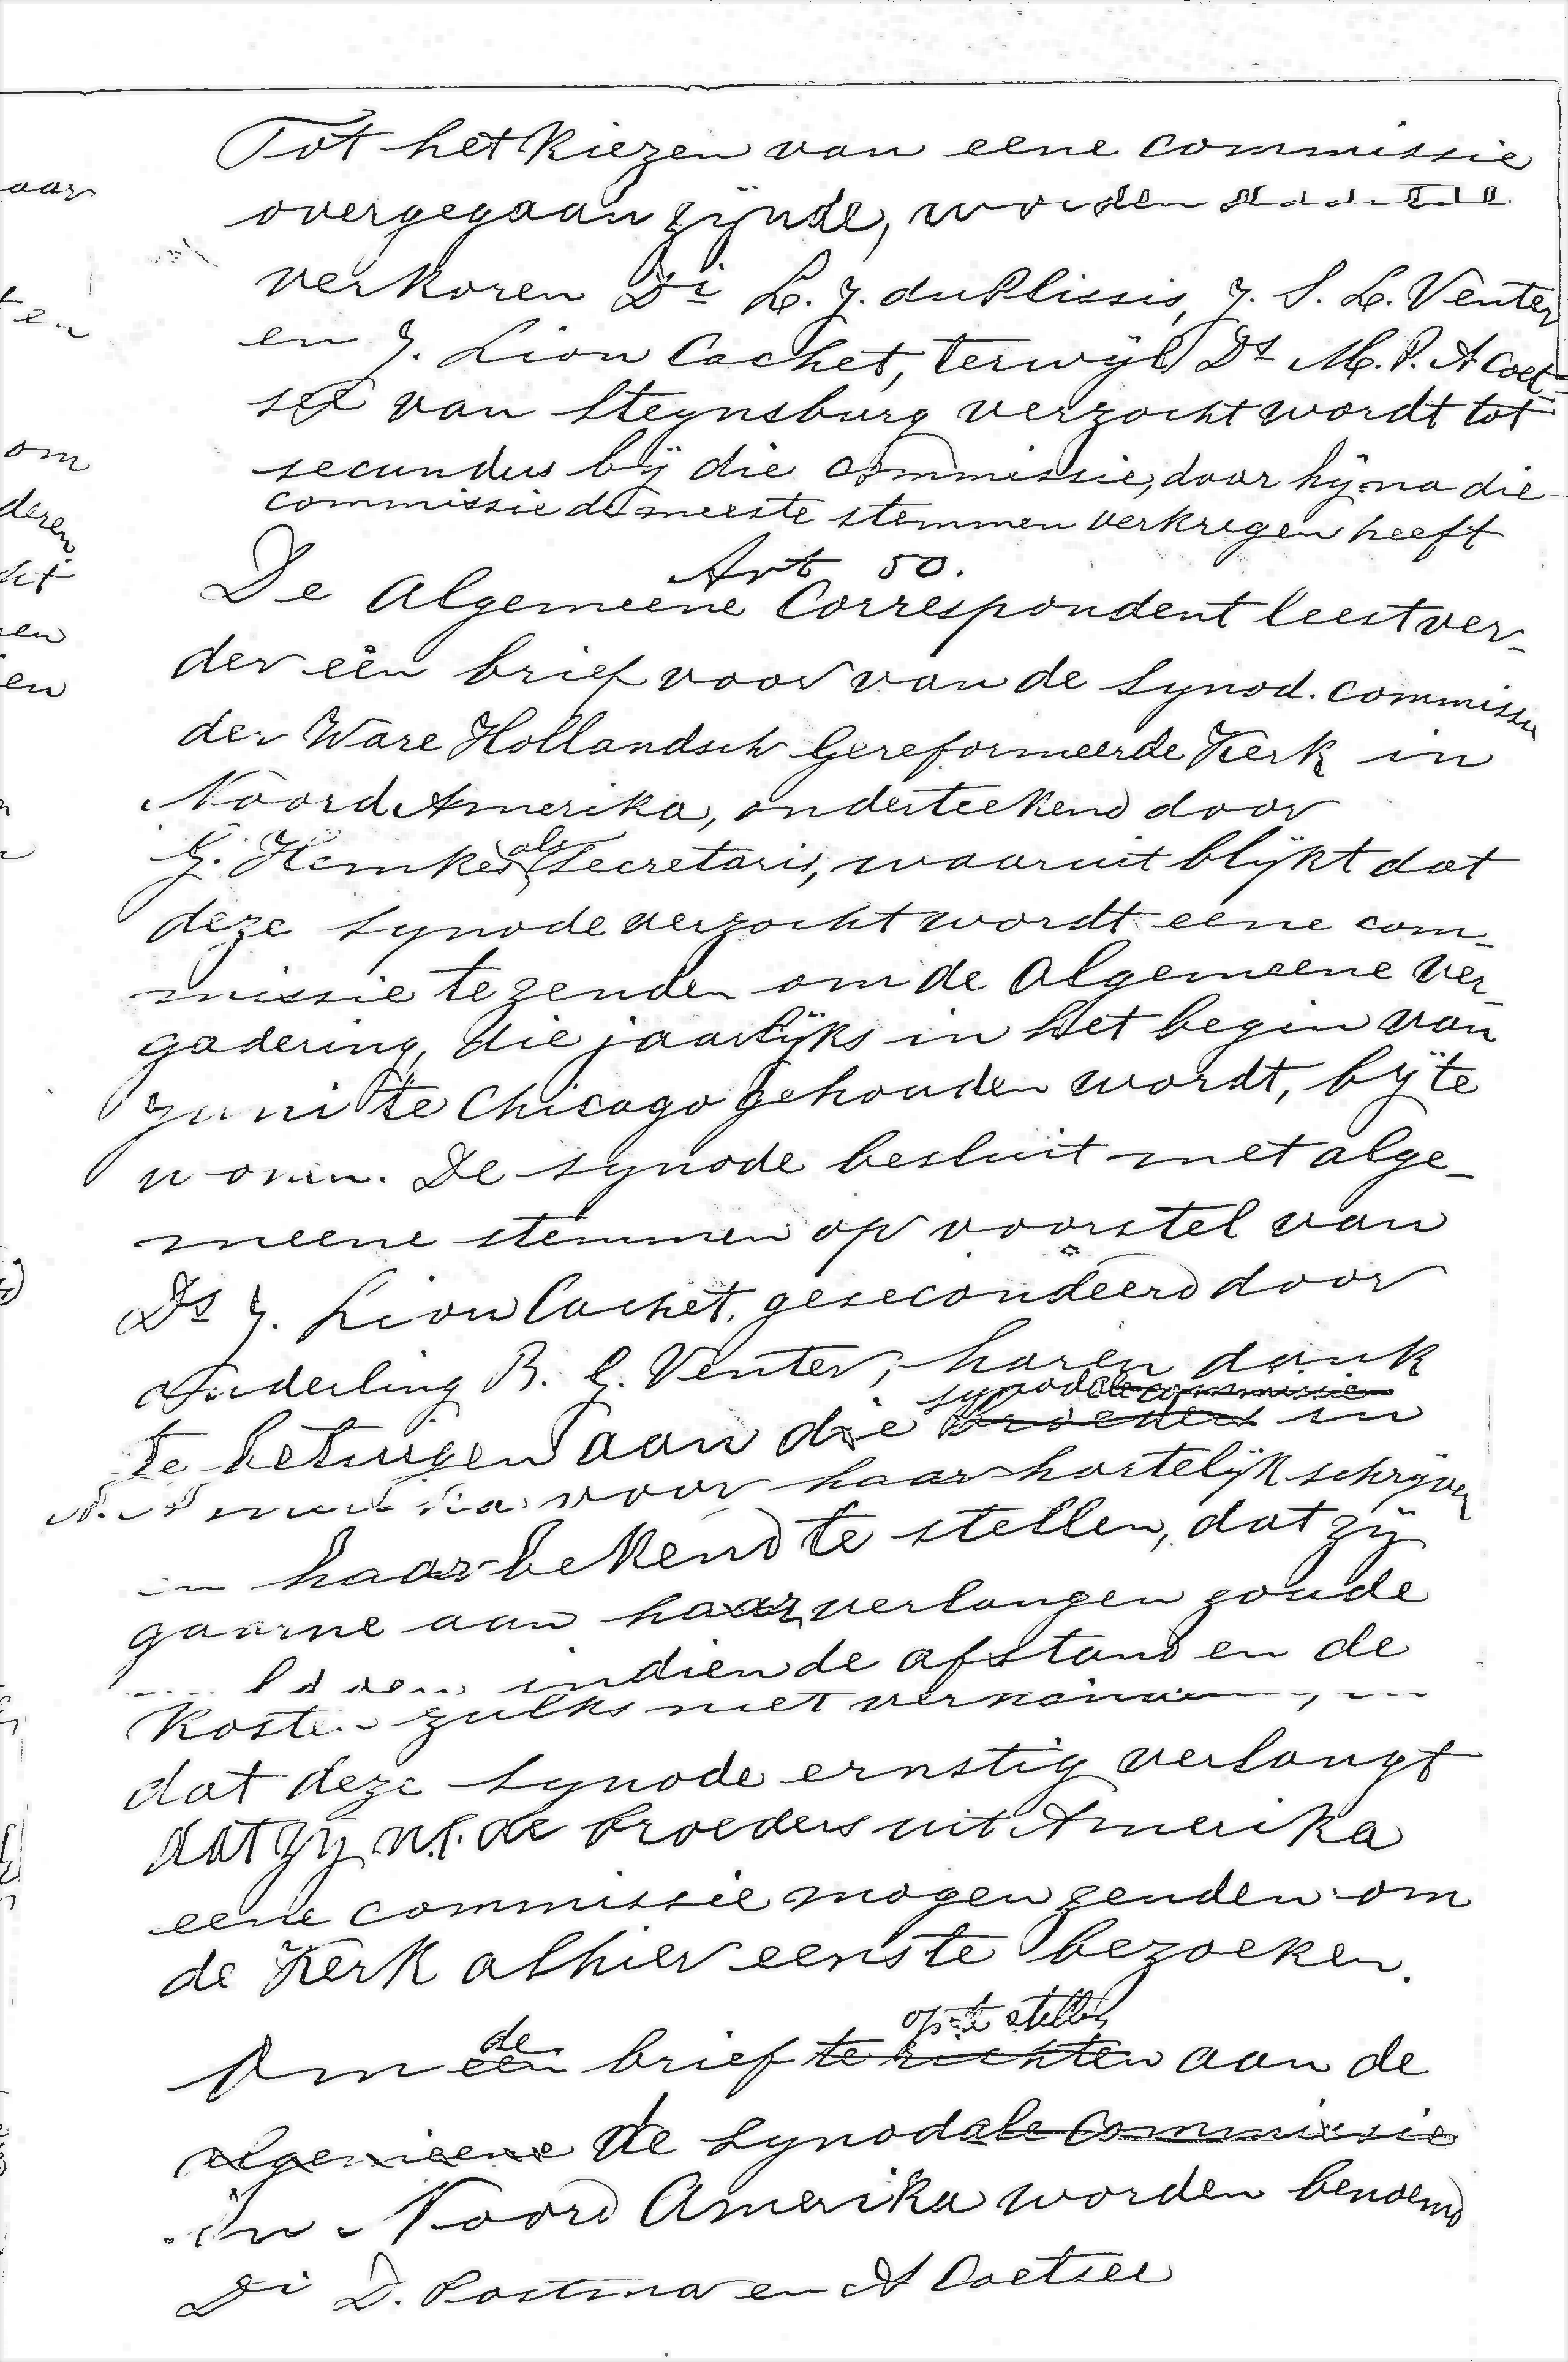 Tot het kiezen van eene commissie
overgegaan zijnde, worden
verkoren Di L. J. du Plissis, J. S. L. Venter
en J. Lion Cachet, terwijl Ds M. P. A Coet=
see van Steynsburg verzocht wordt tot
secundus bij die commissie, daar hij na die
commissie de meeste stemmen verkregen heeft
Art 50.
De Algemeene Correspondent leest ver-
der een brief voor van de Synod. commissie
der Ware Hollandsch Gereformeerde Kerk in
Noord Amerika, onderteekend door
G. Hemkes als Secretaris, waaruit blijkt dat
deze Synode verzocht wordt eene com-
missie te zenden om de Algemeene Ver-
gadering, die jaarlijks in het begin van
Juni te Chicago gehouden wordt, bij te
wonen. De Synode besluit met alge-
meene stemmen op voorstel van
Ds J. Lion Cachet, gesecondeerd door
Ouderling B. G. Venter, haren dank
synodale commissie
te betuigen aan die broeders in
N. Amerika voor haar hartelijk schrijven
en haar bekend te stellen, dat zij
gaarne aan haar verlangen zoude
indien de afstand en de
Kosten zulks niet
dat deze Synode ernstig verlangt
dat zij n.l. de broeders uit Amerika
eene commissie mogen zenden om
de Kerk alhier eens te bezoeken.
de op te stellen
Om een brief te richten aan de
algemeene de Synodale Commissie
in Noord Amerika worden benoemd
Di D. Postma en A Coetsee
aar
ten
om
deren
en
en